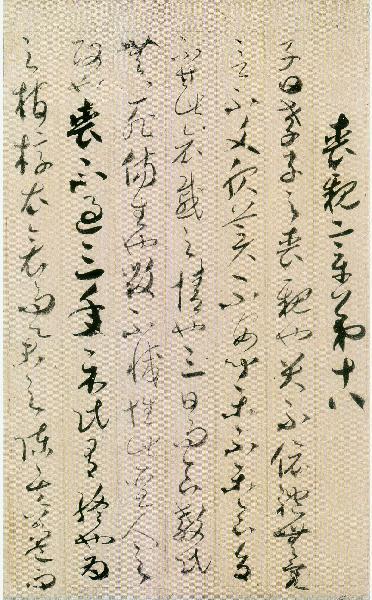 喪親章第十八
子曰孝子之喪親也哭不偯禮無容
言不文服美不安聞樂不樂食旨
不甘此哀慼之情也三日而食教民
無以死傷生也毀不滅性此聖人之
政也喪不過三年示民有終也為
之棺槨衣衾而舉之陳其簠簋而